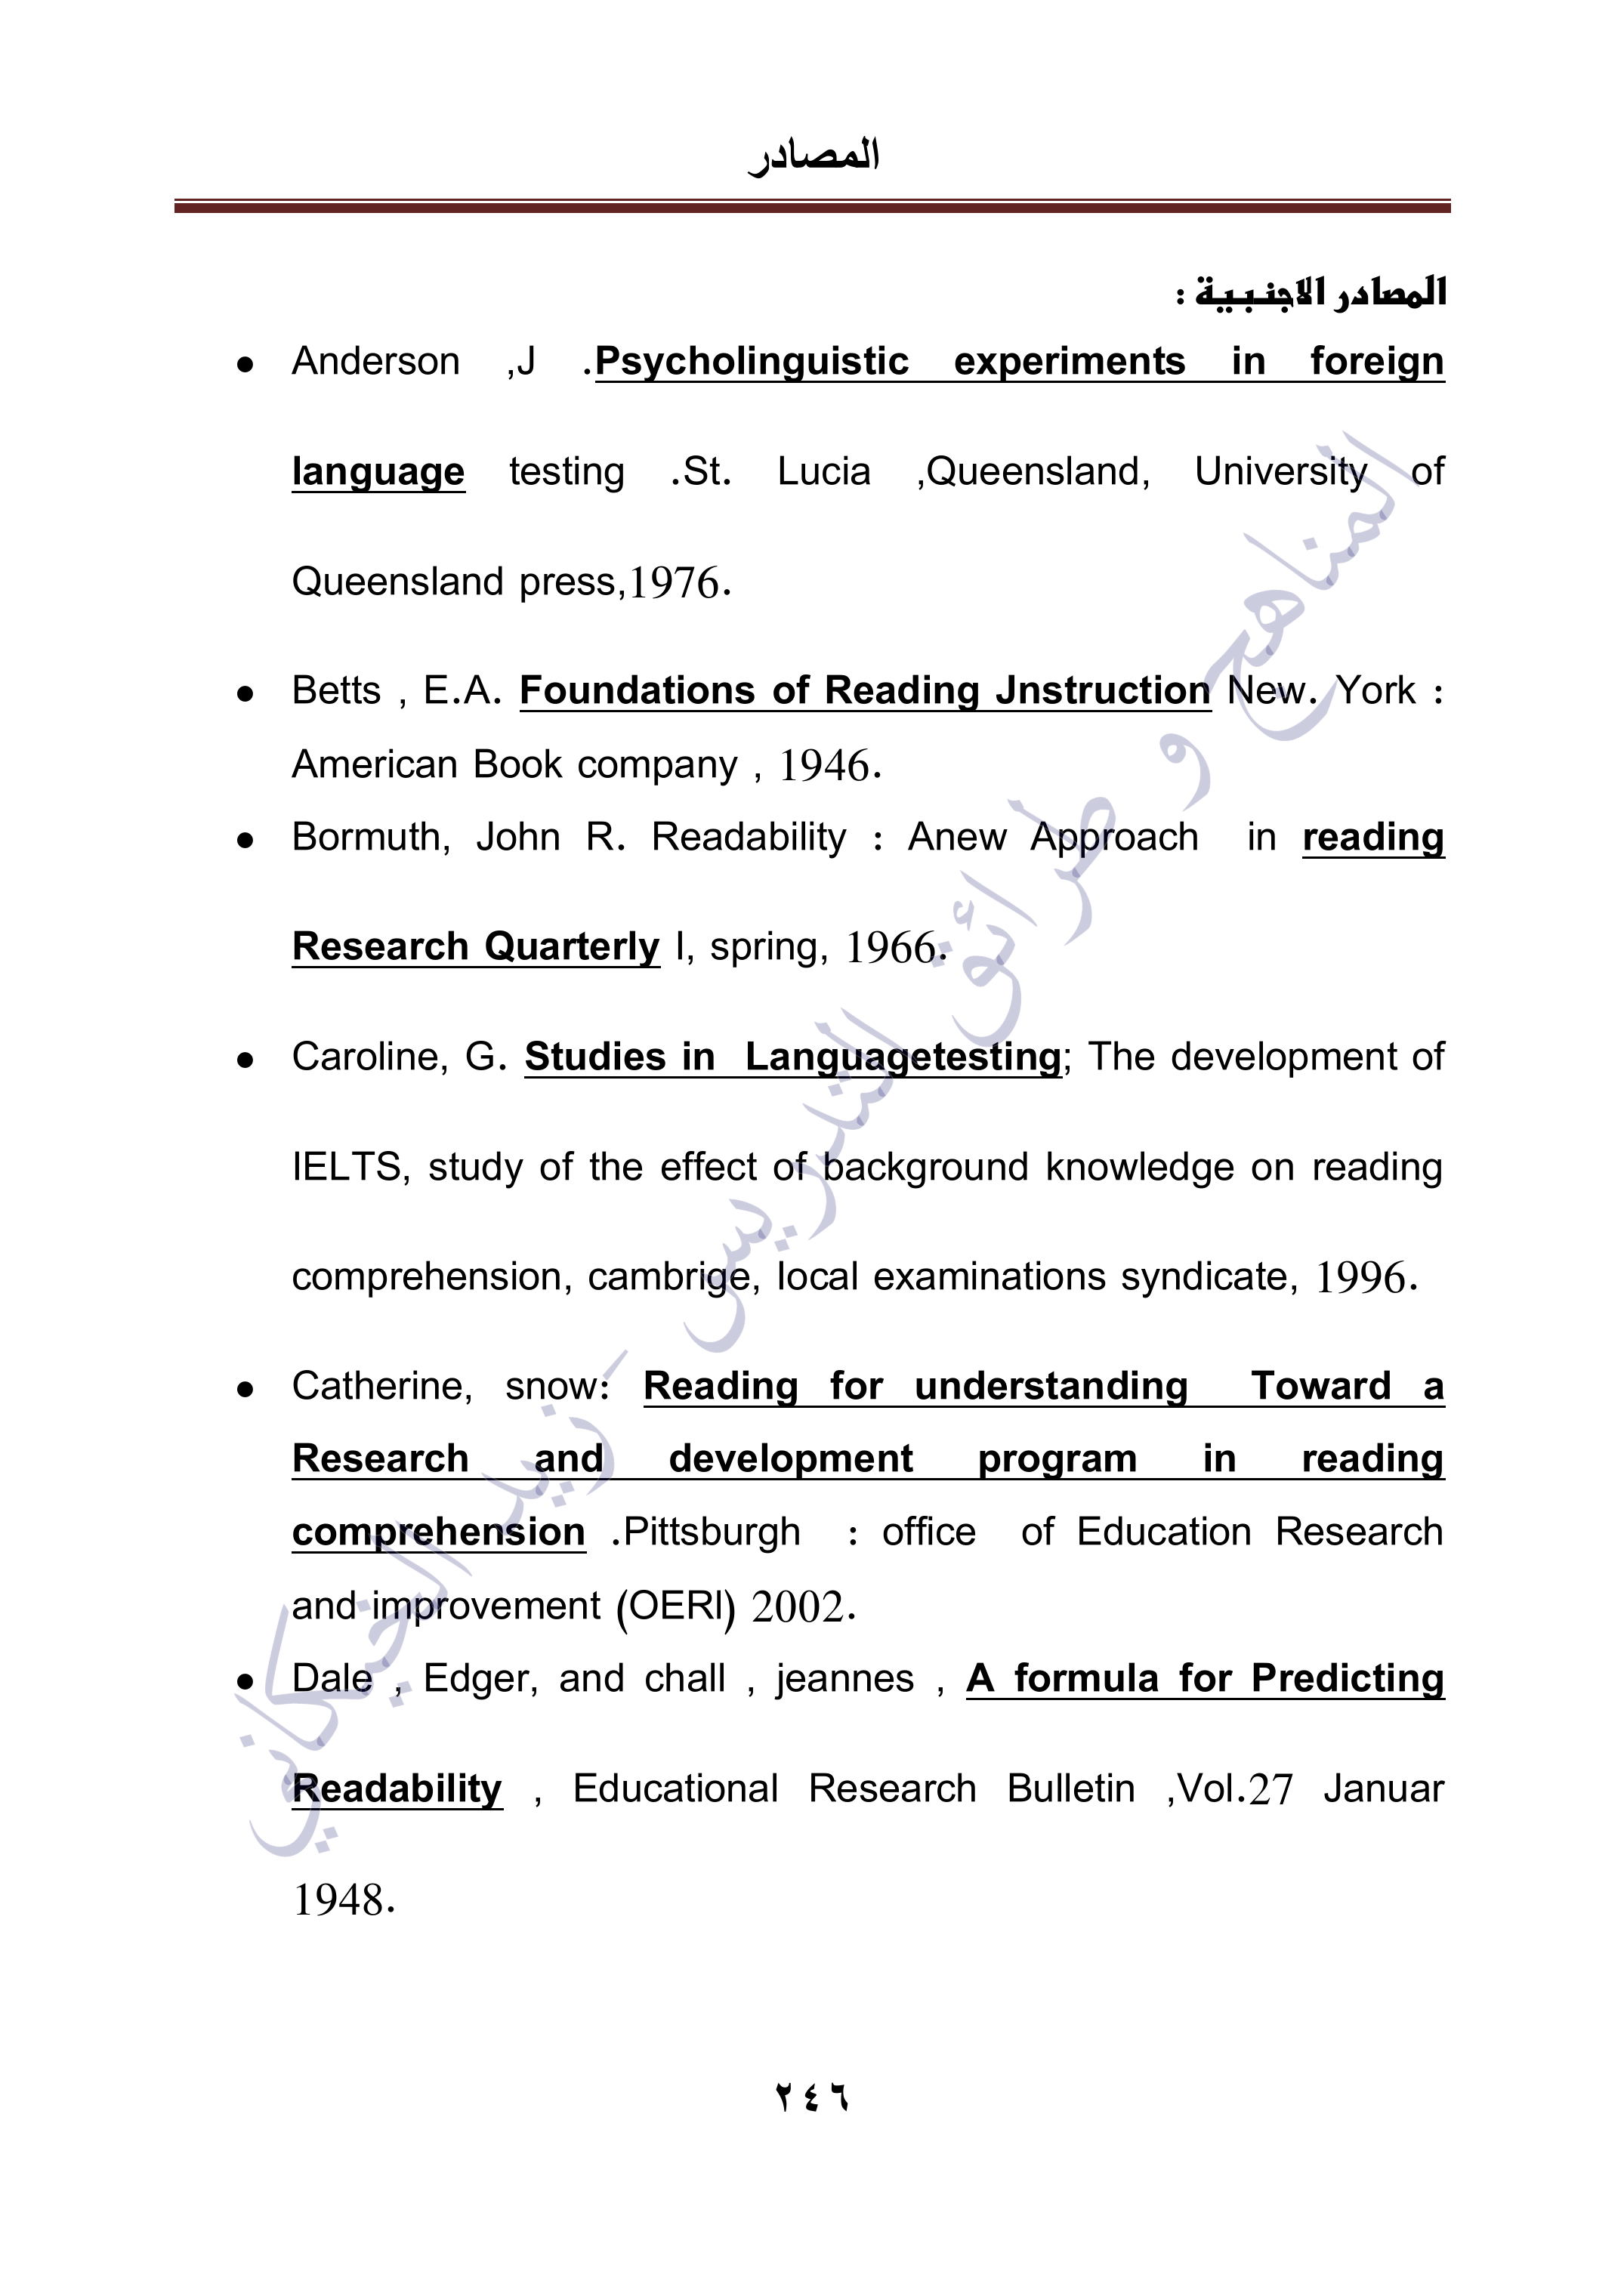 المصادر
المصادر الاجنبية :
• Anderson ,J .Psycholinguistic experiments in foreign
language testing .St. Lucia ,Queensland, University of
Queensland press,1976.
• Betts , E.A. Foundations of Reading Jnstruction New. York :
American Book company , 1946.
• Bormuth, John R. Readability : Anew Approach in reading
Research Quarterly I, spring, 1966.
• Caroline, G. Studies in Languagetesting; The development of
IELTS, study of the effect of background knowledge on reading
comprehension, cambrige, local examinations syndicate, 1996.
• Catherine, snow: Reading for understanding Toward a
Research and development program in reading
comprehension .Pittsburgh : office of Education Research
and improvement (OERI) 2002.
• Dale , Edger, and chall , jeannes , A formula for Predicting
Readability , Educational Research Bulletin ,Vol.27 Januar
1948.
المناهج و طرائق التدريس - زيد الخيكاني
٢٤٦